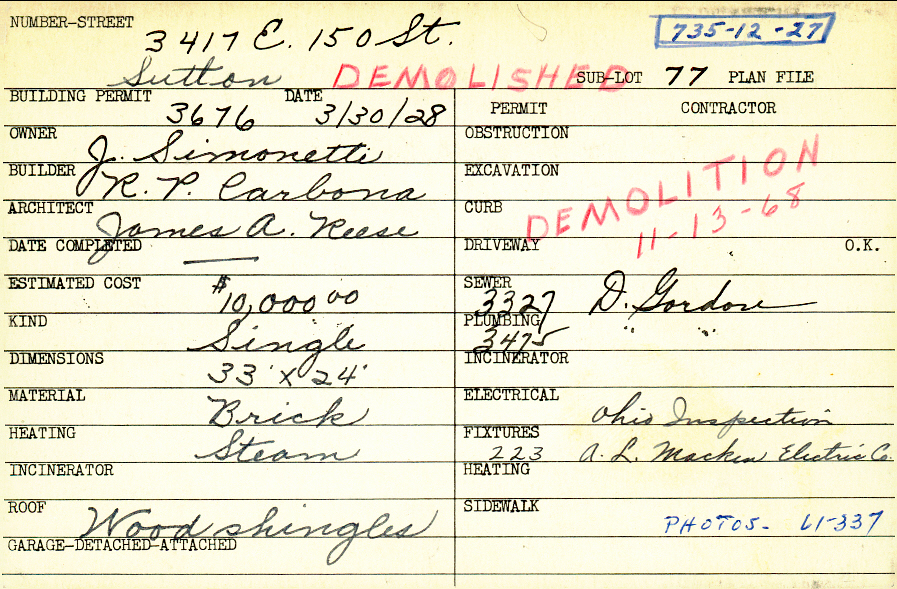 NUMBER-STREET
3417 E. 150 St. 735-12-27
Sutton DEMOLISHED SUB-LOT 77 PLAN FILE
BUILDING PERMIT DATE
3676 3/30/28
OWNER J. Simonetti
BUILDER R. P. Carbona
ARCHITECT James A. Reese
DATE COMPLETED —
ESTIMATED COST $10,000 00
KIND Single
DIMENSIONS 33' X 24'
MATERIAL Brick
HEATING Steam
INCINERATOR
ROOF Wood shingles
GARAGE-DETACHED-ATTACHED
PERMIT CONTRACTOR
OBSTRUCTION
EXCAVATION
CURB
DEMOLITION
11-13-68
DRIVEWAY O.K.
SEWER
3327 D. Gordon
PLUMBING
3475 " "
INCINERATOR
ELECTRICAL Ohio Inspection
FIXTURES
223 A. L. Electric Co.
HEATING
SIDEWALK
PHOTOS- 61-337